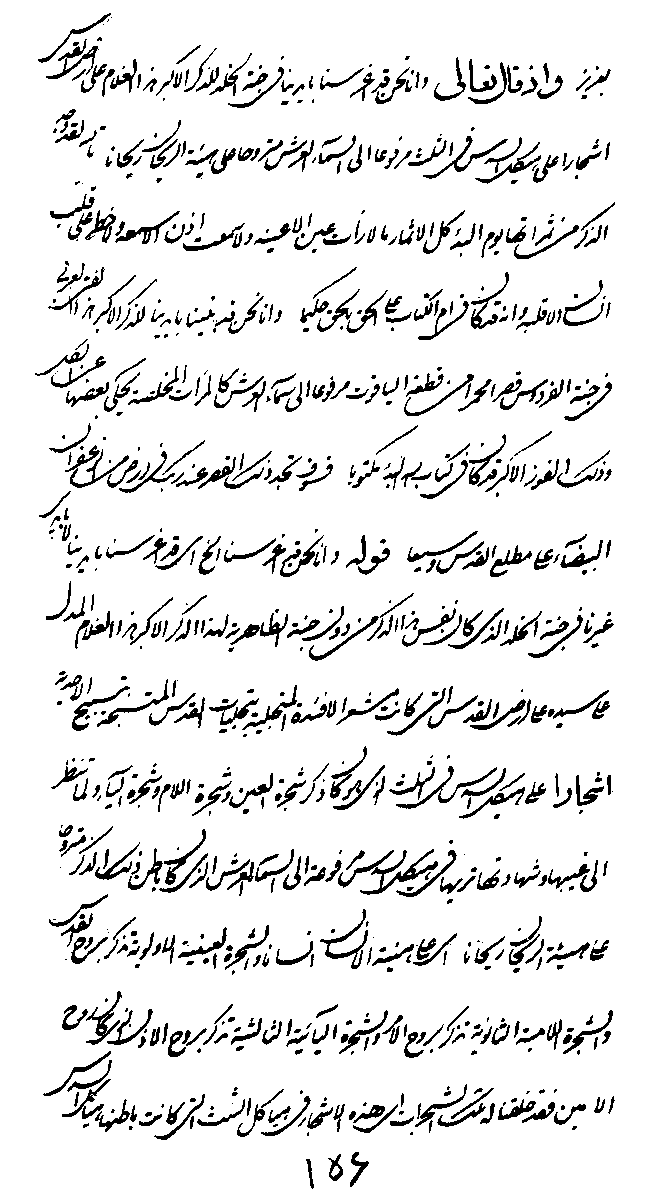 بعزيز واذ قال تعالى وانا نحن قد غرسنا بايدينا في جنة الخلد للذكر الاكبر هذا الغلام على ارض القدس
اشجارا على هيكل السدس في الثلث مرفوعا الى السماء العرش متروحا على هيئة الريحان ريحانا
الذكر من ثمراتها يوم البدء كل الاثمار ما لا رأت عين الاعينه ولا سمعت اذن الا سمعه ولا خطر على قلب
انسان الا قلبه وانه قد كان في ام الكتاب على الحق بالحق حكيما وانا نحن قد بنينا بايدينا للذكر الاكبر هذا
في جنة الفردوس قصرا محمرا من قطعة الياقوت مرفوعا الى سماء العرش كالمرآت المخلصة يحكى بعضها عن الكل
وذلك الفوز الاكبر قد كان في كتاب الله البدء مكتوبا فسوف تجد ذلك القصر عند ربك في ارض من الزعفران
البيضآء على مطلع القدس وسيعا قوله وانا نحن قد غرسنا الخ اى قد غرسنا بايدينا لا بايدى
غيرنا في جنة الخلد الذى كان نفس هذا الذكر من دون جنة الظاهرية لهذا الذكر الاكبر هذا الغلام المدل
على سيده على ارض القدس التى كانت مشعر الافئدة المتجلية بتجليات القدس المتسبحة بتسبيح الاحدية
اشجارا على هيكل السدس في الثلث اى هو كان ذكر شجرة العين وشجرة اللام وشجرة اليآء ولما تنظر
الى غيبها وشهادتها تريها في هيكل السدس مرفوعة الى السماء العرش الذى كان باطن ذلك الذكر متروحا
على هيئة الريحان ريحانا اى على هيئة الانسان انسانا والشجرة العينية الاولوية تذكر بروح القدس
والشجرة اللامية الثانوية تذكر بروح الامر والشجرة اليائية الثالثية تذكر بروح الاذن الذى كان روح
الامين فقد خلقنا له تلك الشجرات اى هذه الاشجار في هياكل الثلث التى كانت باطنها هياكل السدس
١٥٦